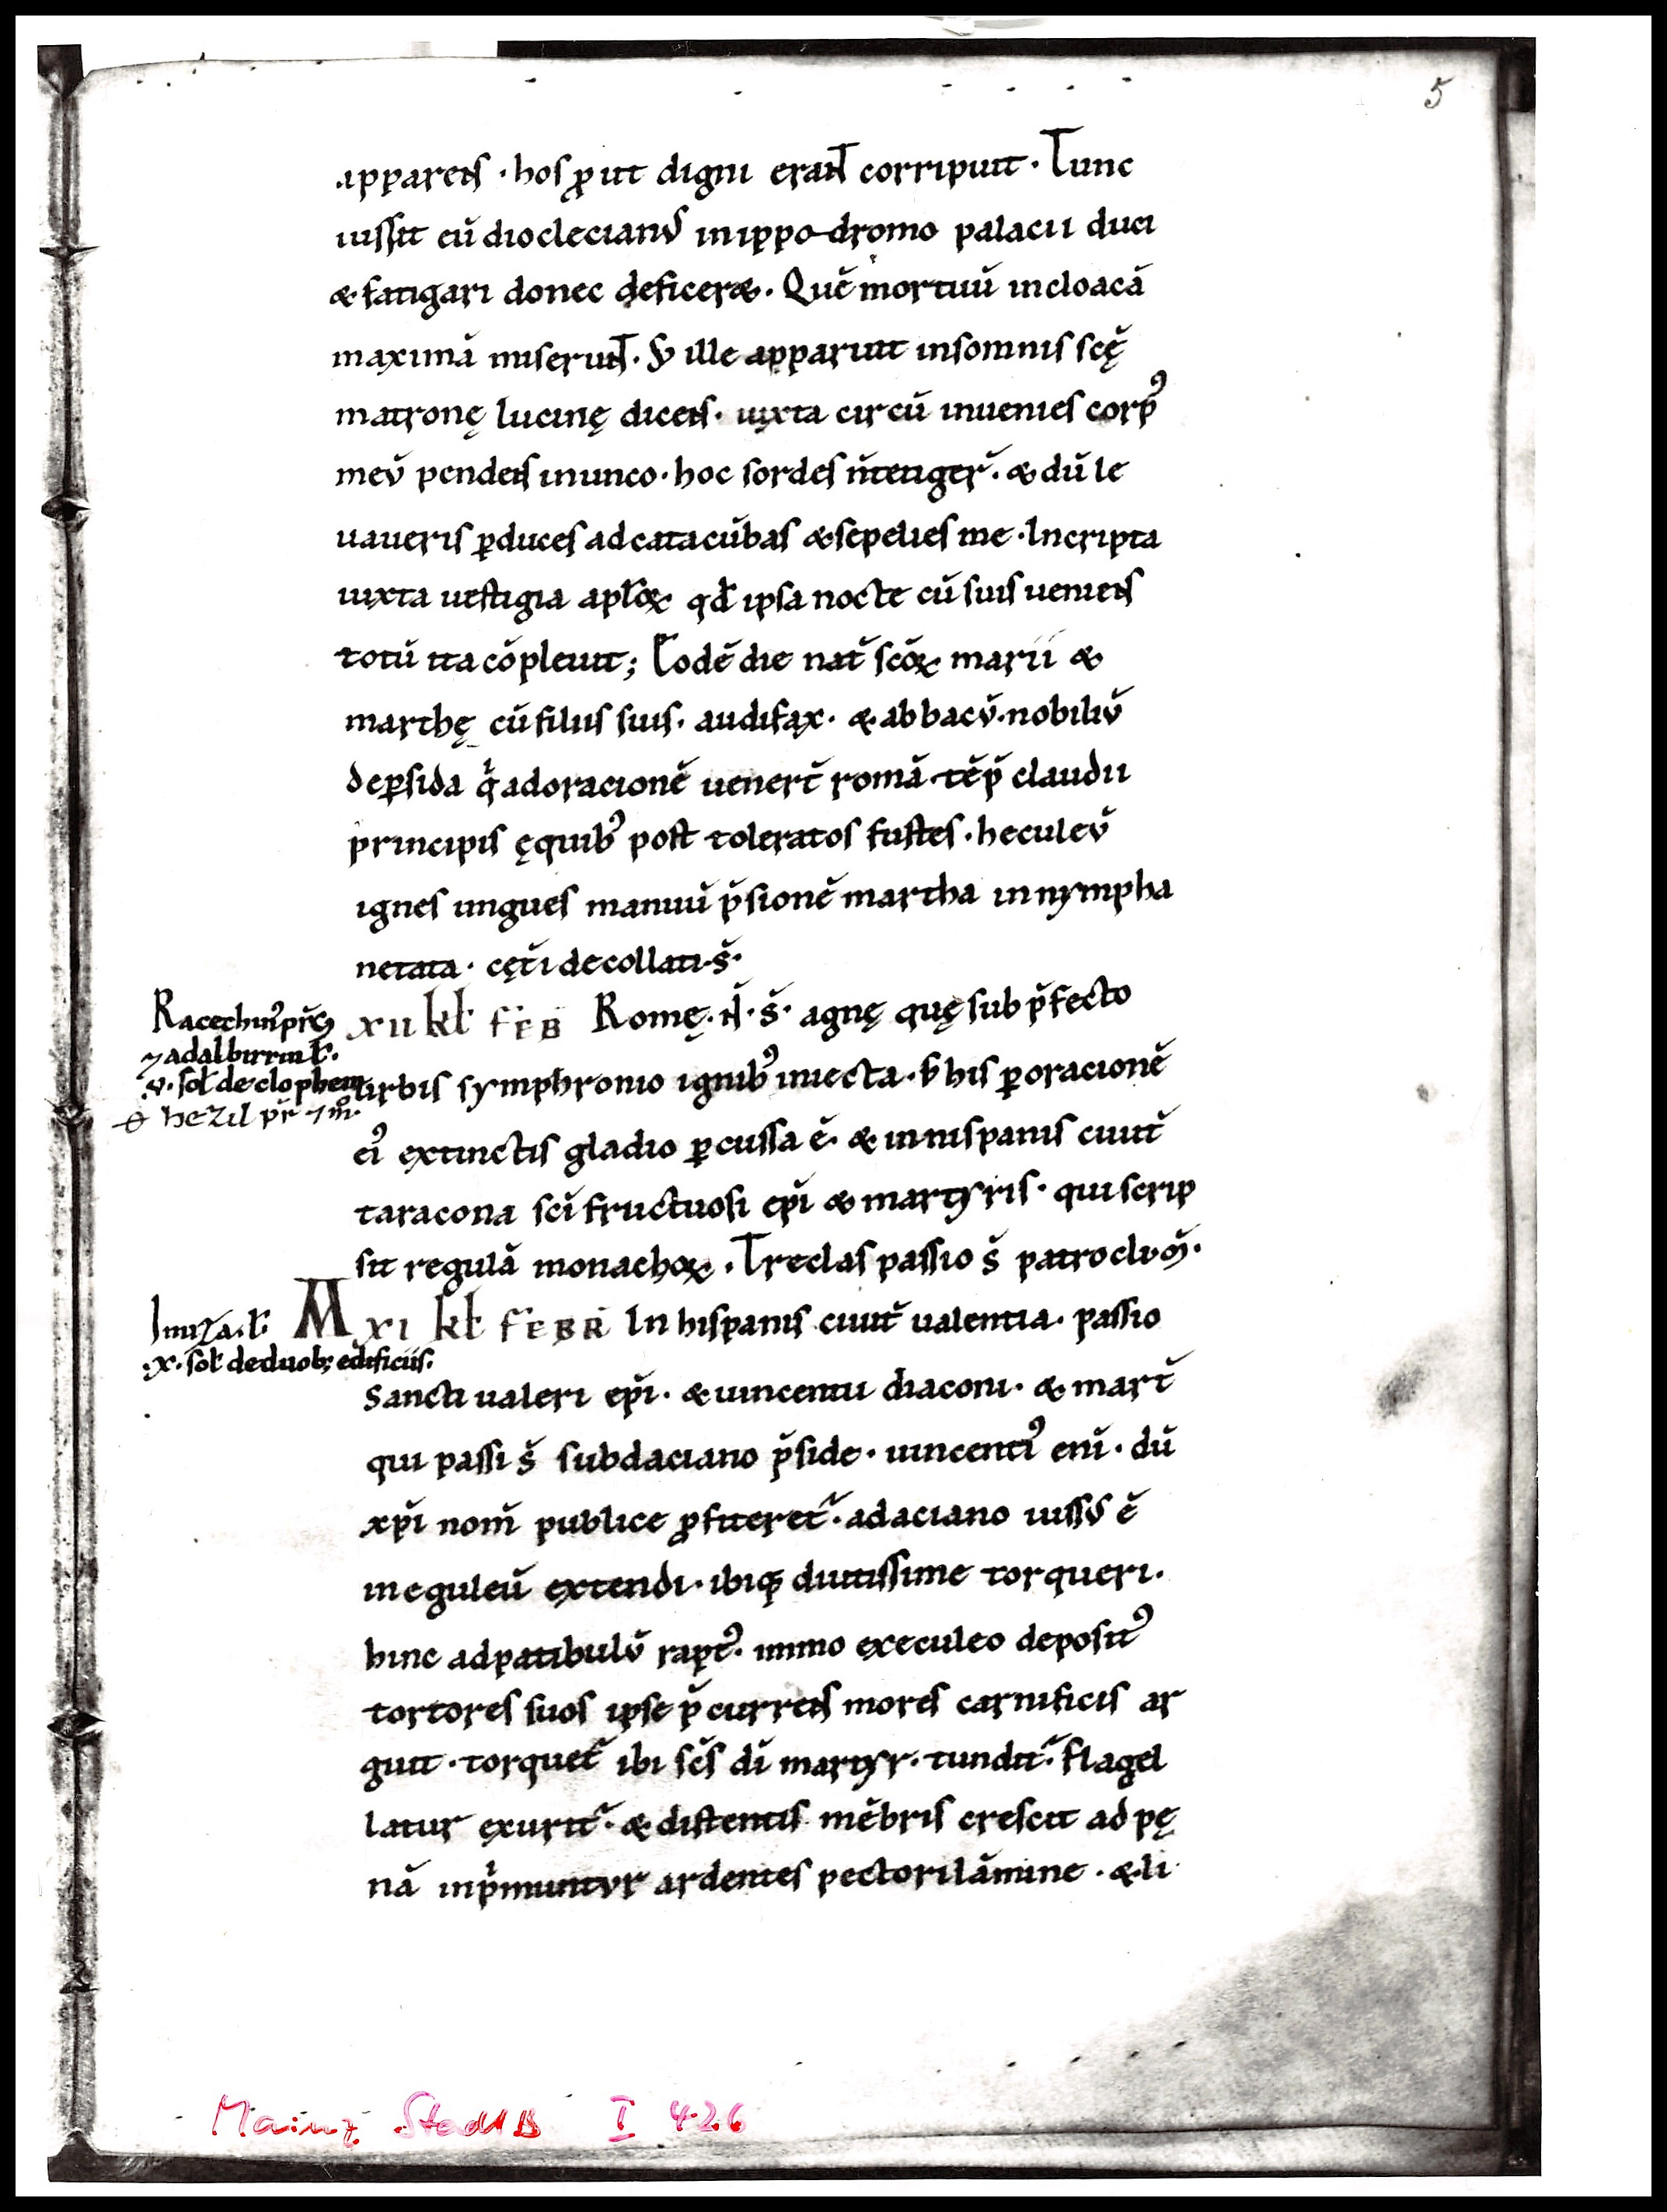 5
apparens · hos ꝓut digni erant corripuit · Tunc
iussit eū dioclecianus in ippodromo palacii duci
& fatigari donec deficeret. Quē mortuū incloacā
maximā miserunt. S; ille apparuit insomnis scę
matronę lucinę dicens. iuxta circū inuenies corpꝰ
meū pendens inunco · hoc sordes n̄ tetiger̄. & dū le
uaueris ꝑduces adcatacūbas & sepelies me · Incripta
iuxta uestigia apl̄oꝝ qđ ipsa nocte cū suis ueniens
totū ita cōpleuit; Eodē die nat̄ scōꝝ marii &
marthę cū filiis suis. audifax. & abbacū. nobiliū
deꝑsida q̇ adoracionē uener̄t romā tēp̄ claudii
principis ęquibꝰ post toleratos fustes. heculeū
ignes ungues manuū p̄sionē martha in nympha
netata. cęt̄i decollati s̄.
xii kł feb Romę. N̄. s̄. agnę quę sub p̄fecto
urbis symphronio ignibꝰ iniecta. s; his ꝑoracionē
eiꝰ extinctis gladio ꝑcussa ē. & in hispanis ciuit̄
taracona scī fructuosi ep̄i & martyris. qui scrip
sit regulā monachoꝝ. Treclas passio s̄ patrocli m̄.
Racechinꝰ pr̄
⁊ adalbirrin ł.
.v. soł de clophem
hezil pr̄ ⁊ m̊.
M xi kł febr̄ In hispanis ciuit̄ ualentia. passio
Imiza. ł
.x. soł deduob; edificiis.
Sancti ualeri ep̄i. & uincentii diaconi. & mart̄
qui passi s̄ subdaciano p̄side. uincentiꝰ enī. dū
xp̄i nom̄ publice ꝓfiteret̄. adaciano iussus ē
in eguleū extendi. ibiq; diutissime torqueri.
hinc adpatibulū raptꝰ. immo execuleo depositꝰ
tortores suos ipse p̄currens mores carnificis ar
guit. torquet̄ ibi sc̄s dī martyr. tundit̄. flagel
latur exurit̄. & distentis mēbris crescit ad pę
nā inp̄muntur ardentes pectori lāmine. & li
Mainz StadtB I 426